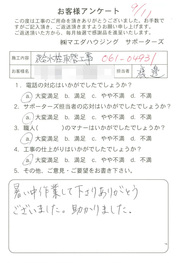 9/11
お客様アンケート
この度は工事のご用命を頂きありがとうございました。お手数で
すがご記入頂き、ご返送頂きますようお願い申し上げます。
ご返送頂いた方から、毎月抽選で感謝品を進呈いたします。
㈱マエダハウジング サポーターズ
施工内容
給水管取替工事 061-0493
担当者 渡邊
1．電話の対応はいかがでしたでしょうか？
a. 大変満足 b. 満足 c. やや不満 d. 不満
2．サポーターズ担当者の応対はいかがでしたでしょうか？
a. 大変満足 b. 満足 c. やや不満 d. 不満
3．職人( )のマナーはいかがでしたでしょうか？
a. 大変満足 b. 満足 c. やや不満 d. 不満
4．工事の仕上がりはいかがでしたでしょうか？
a. 大変満足 b. 満足 c. やや不満 d. 不満
5．その他、ご意見・ご要望をお聞きかせください。
暑い中作業して下さりありがとう
ございました。助かりました。